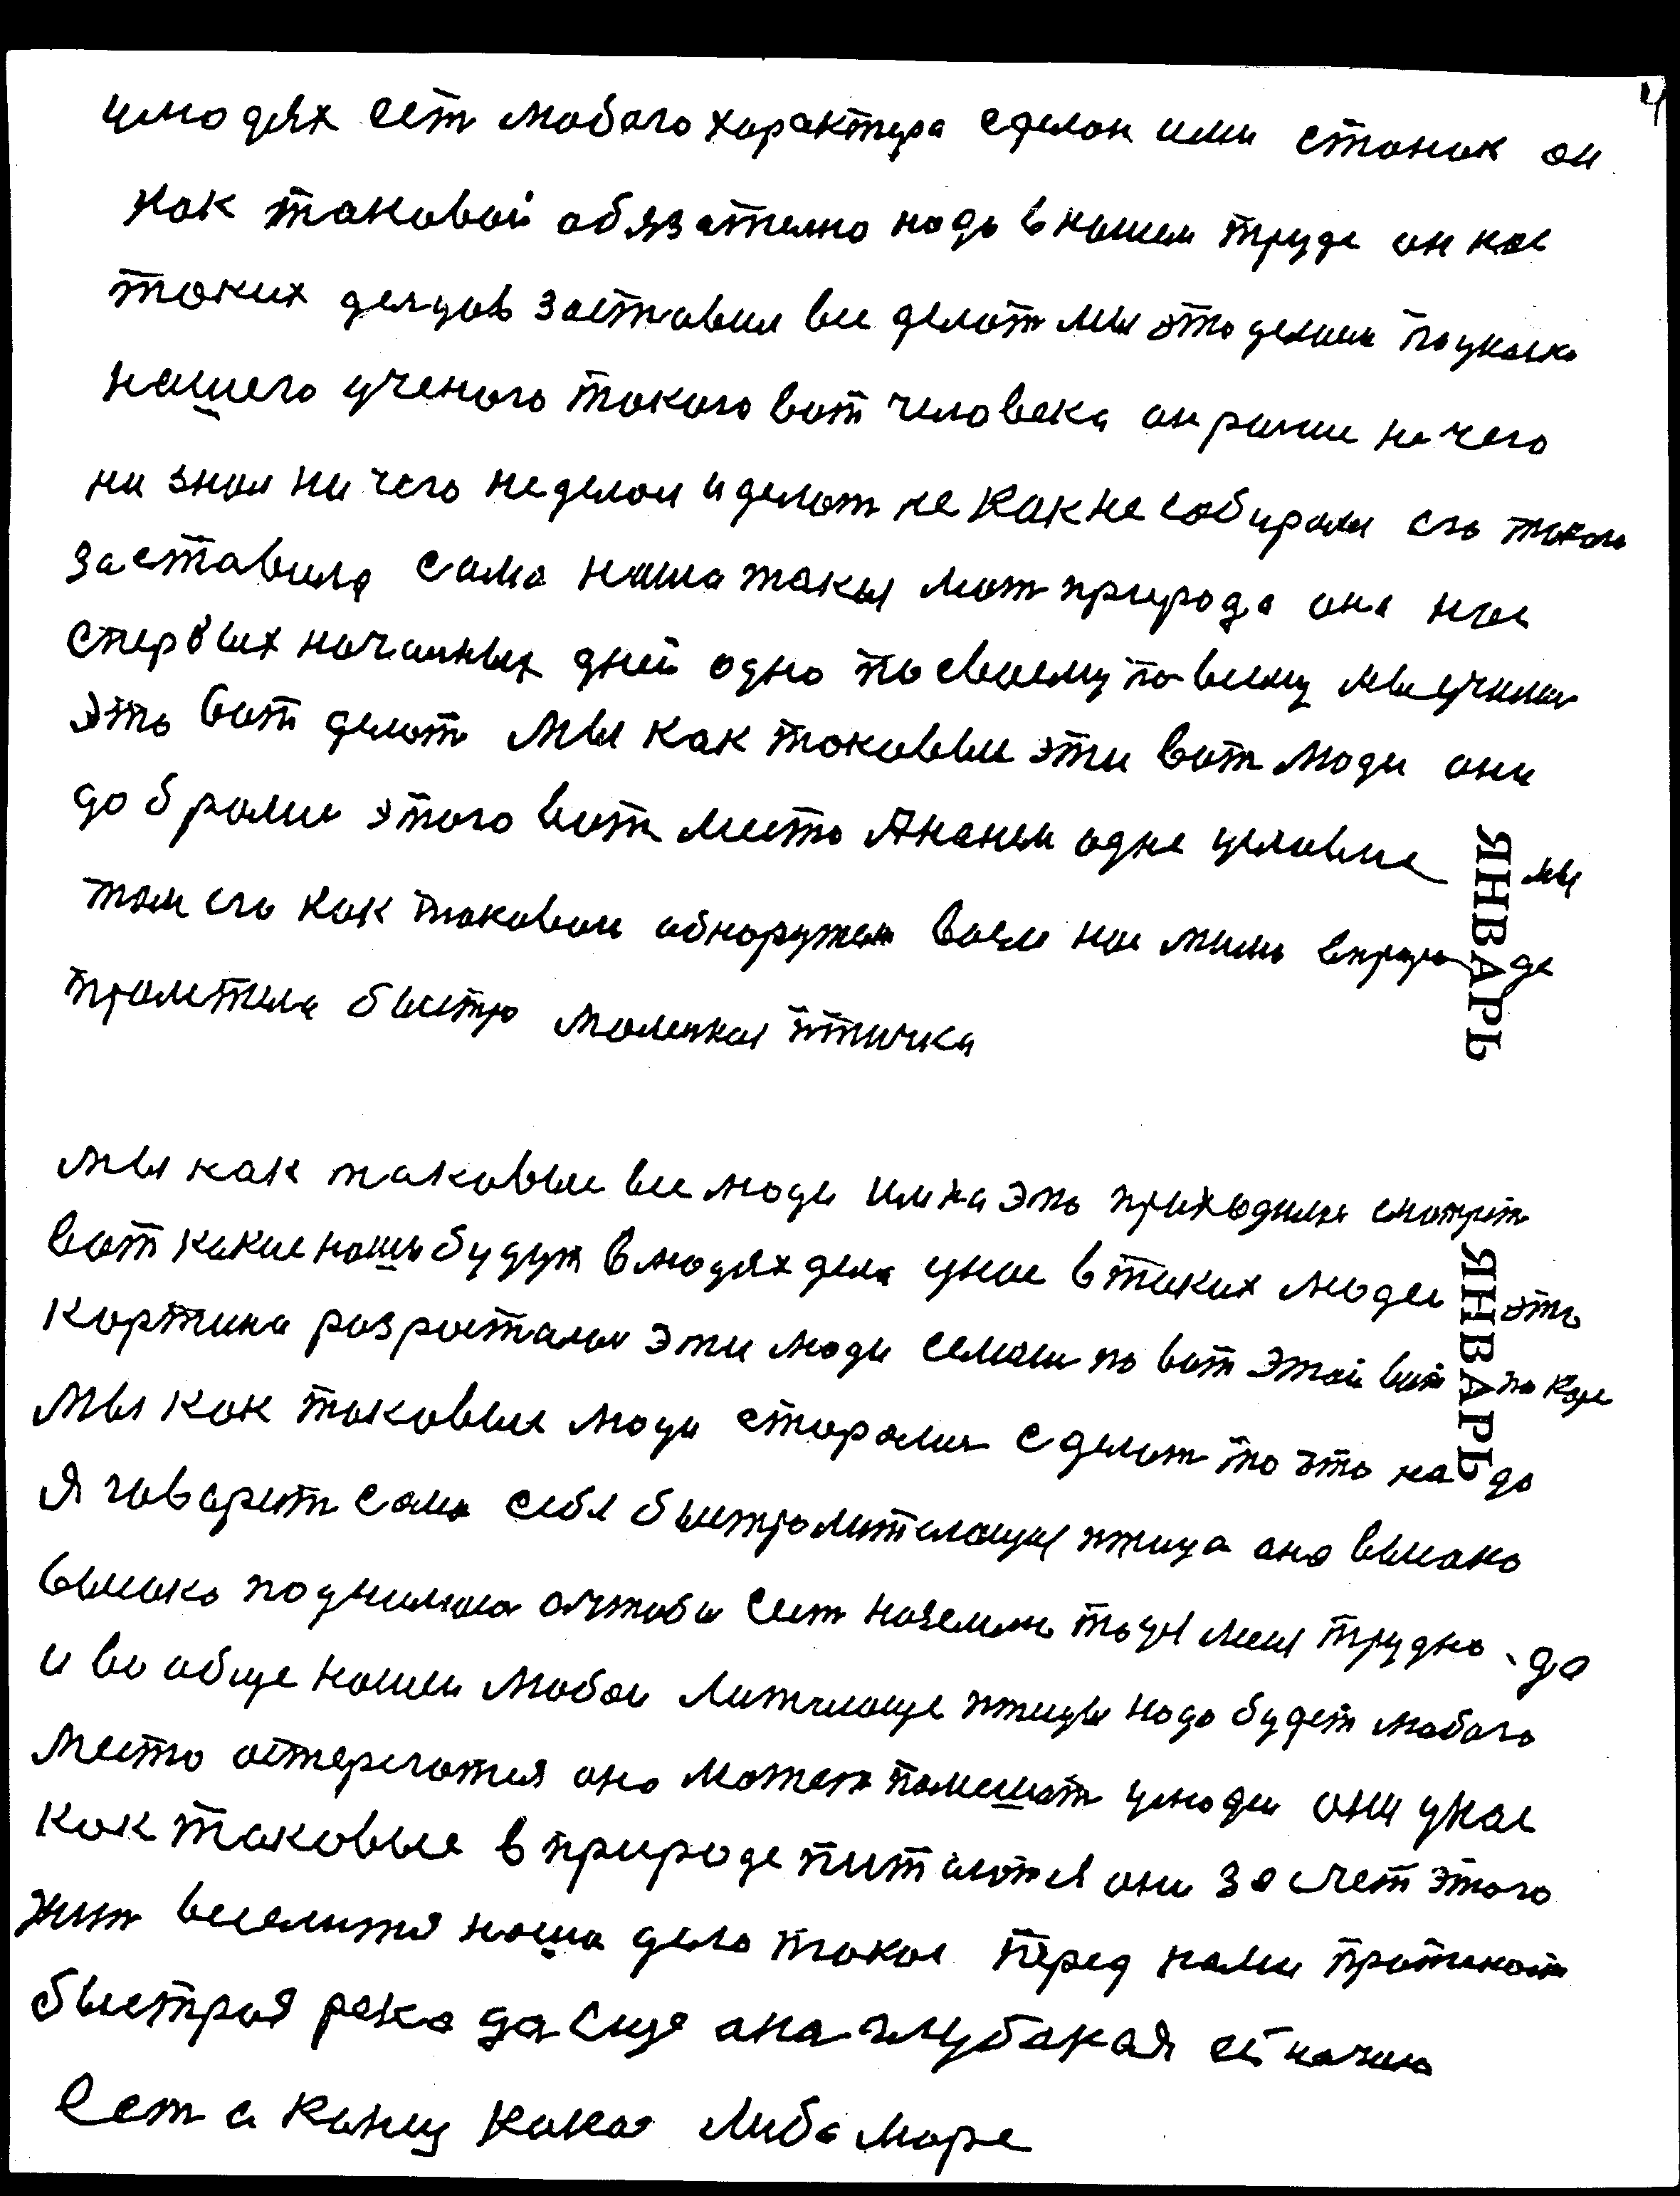 4
улюдях ест любого характера сделан ими станок он
как таковой обязателно надо внашем труде он нас
таких делцов заставил все делат мы это делаем
нашего ученого такого вот человека он ранше не чего
ни знал ни чего неделал и делат не как не собирался его такого
заставила сама наша такая мат природа она нас
сперьвых началных дней одно по своему по всему мы
это вот делат мы как таковые эти вот люди они
добралис этого вот места Ананем одне целовне мы
там его как таковои обнаружем восем нас мимо вприро де
пролетила быстро маленкая птичка
ЯНВАРЬ
мы как таковые все люди им на это приходилос смотрет
вот какие нашы будут влюдях дела унас втаких людеи это
картина розросталас эти люди сеялис по вот этой вот по
мы как таковые люди старалис сделат то что на до
Я говарит сама себя быстролителащия птица она высако
высако поднилася ачтобы сест наземлю то для меня трудно да
и во обще нашеи любои литучаще птицы надо будет любога
места остерегатся оно может помешат улюдеи они унас
как таковые вприроде питаются они за счет этого
жит веселится наша дело такое перед нами протекает
быстрая река да еще она глубакая её начало
Ест а конец какое либа море
ЯНВАРЬ